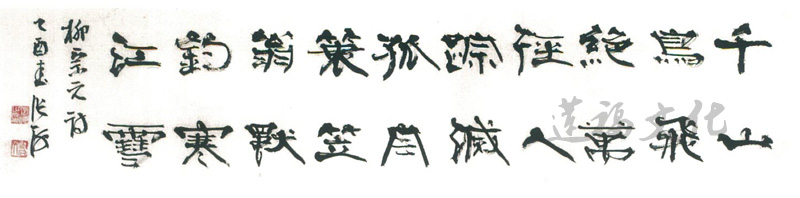 千山
鳥飛
絶萬
徑人
踪滅
孤舟
蓑笠
翁獨
釣寒
江雪
柳宗元詩
乙酉春张海
福文化